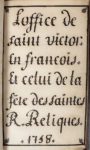 L'office de
saint victor.
En francois.
Et celui de la
fête des saintes
R. Reliques.
.1758.